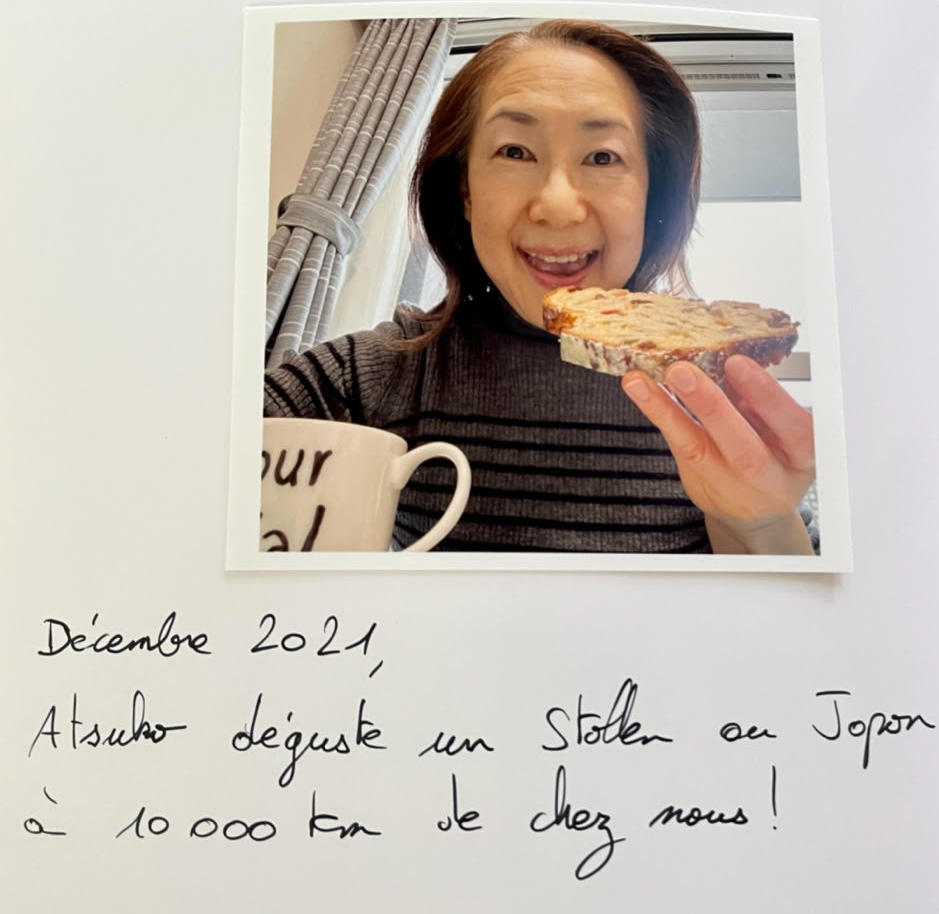 our
al
Décembre 2021,
Atsuko déguste un Stollen au Japon
à 10 000 km de chez nous!